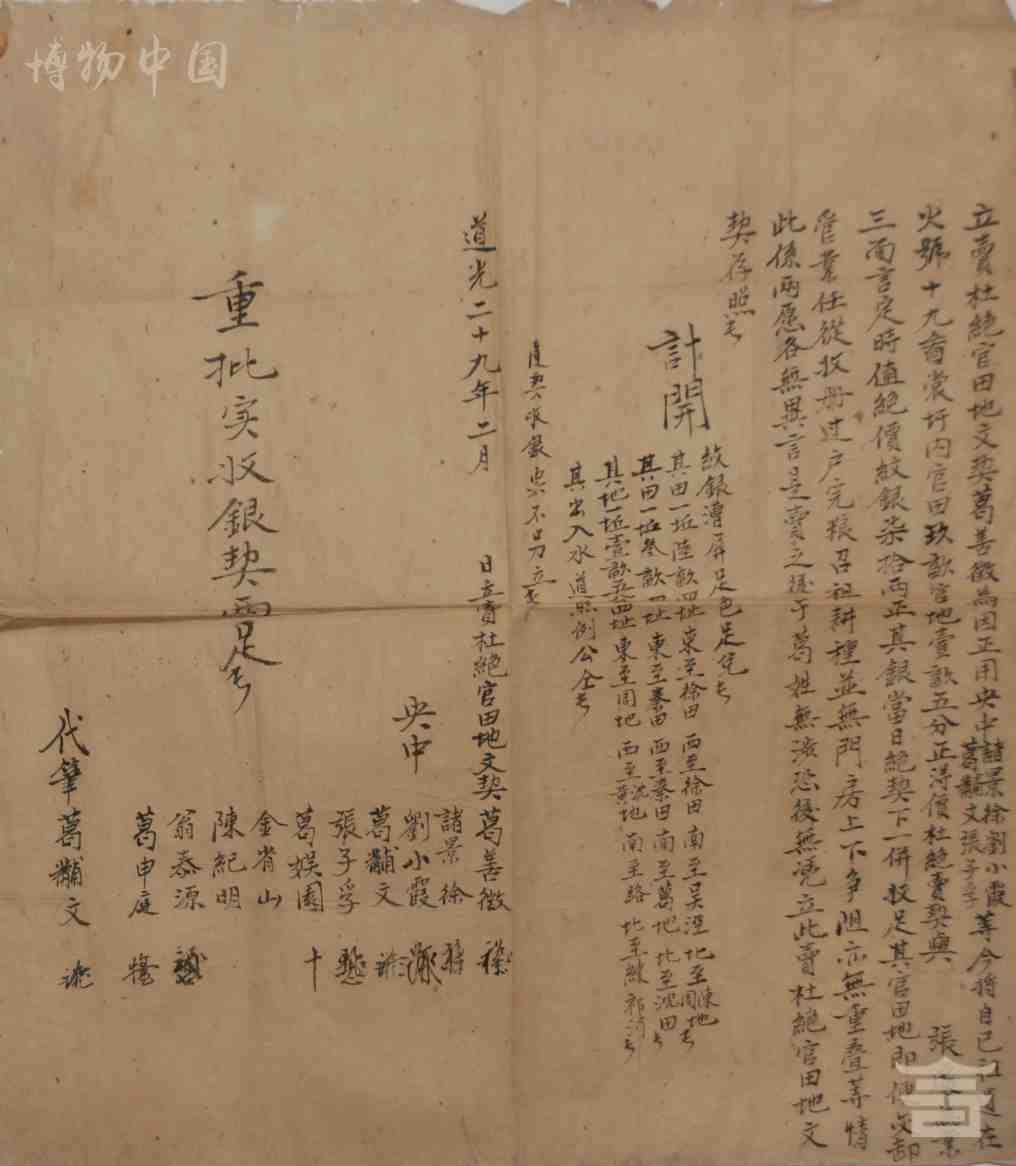 博物中国
立賣杜絕官田地文契葛善徵為因正用央中諸景徐劉小霞葛黼文張子孚等今將自己在
火號十九啚裳圩內官田玖畝官地壹畝五分正淂價杜絕賣契與 張 業
三面言定時值絕價紋銀柒拾兩正其銀當日絕契下一併收足其官田地即便
管業任從收冊过户完粮召租耕種並無門房上下爭阻亦無重叠等情
此係兩愿各無異言是賣之後于葛姓無涉恐後無凭立此賣杜絕官田地文
契存照
計開
銀漕屏足色足
其田一坵陸畝四址東至徐田 西至徐田 南至吴涇 北至陳周地
其田一坵叁畝四址東至秦田 西至秦田 南至葛地 北至沈田
其地一坵壹畝五分四址東至周地 西至沈黄地 南至路 北至祁河
其出入水道照例公仝
契收銀票不另立
道光二十九年二月 日立賣杜絕官田地文契葛善徵
央中
諸景徐
劉小霞
葛黼文
張子孚
葛娱園 十
金省山
陳紀明
翁泰源
葛申庭
重批实收銀契兩足
代筆葛黼文
言